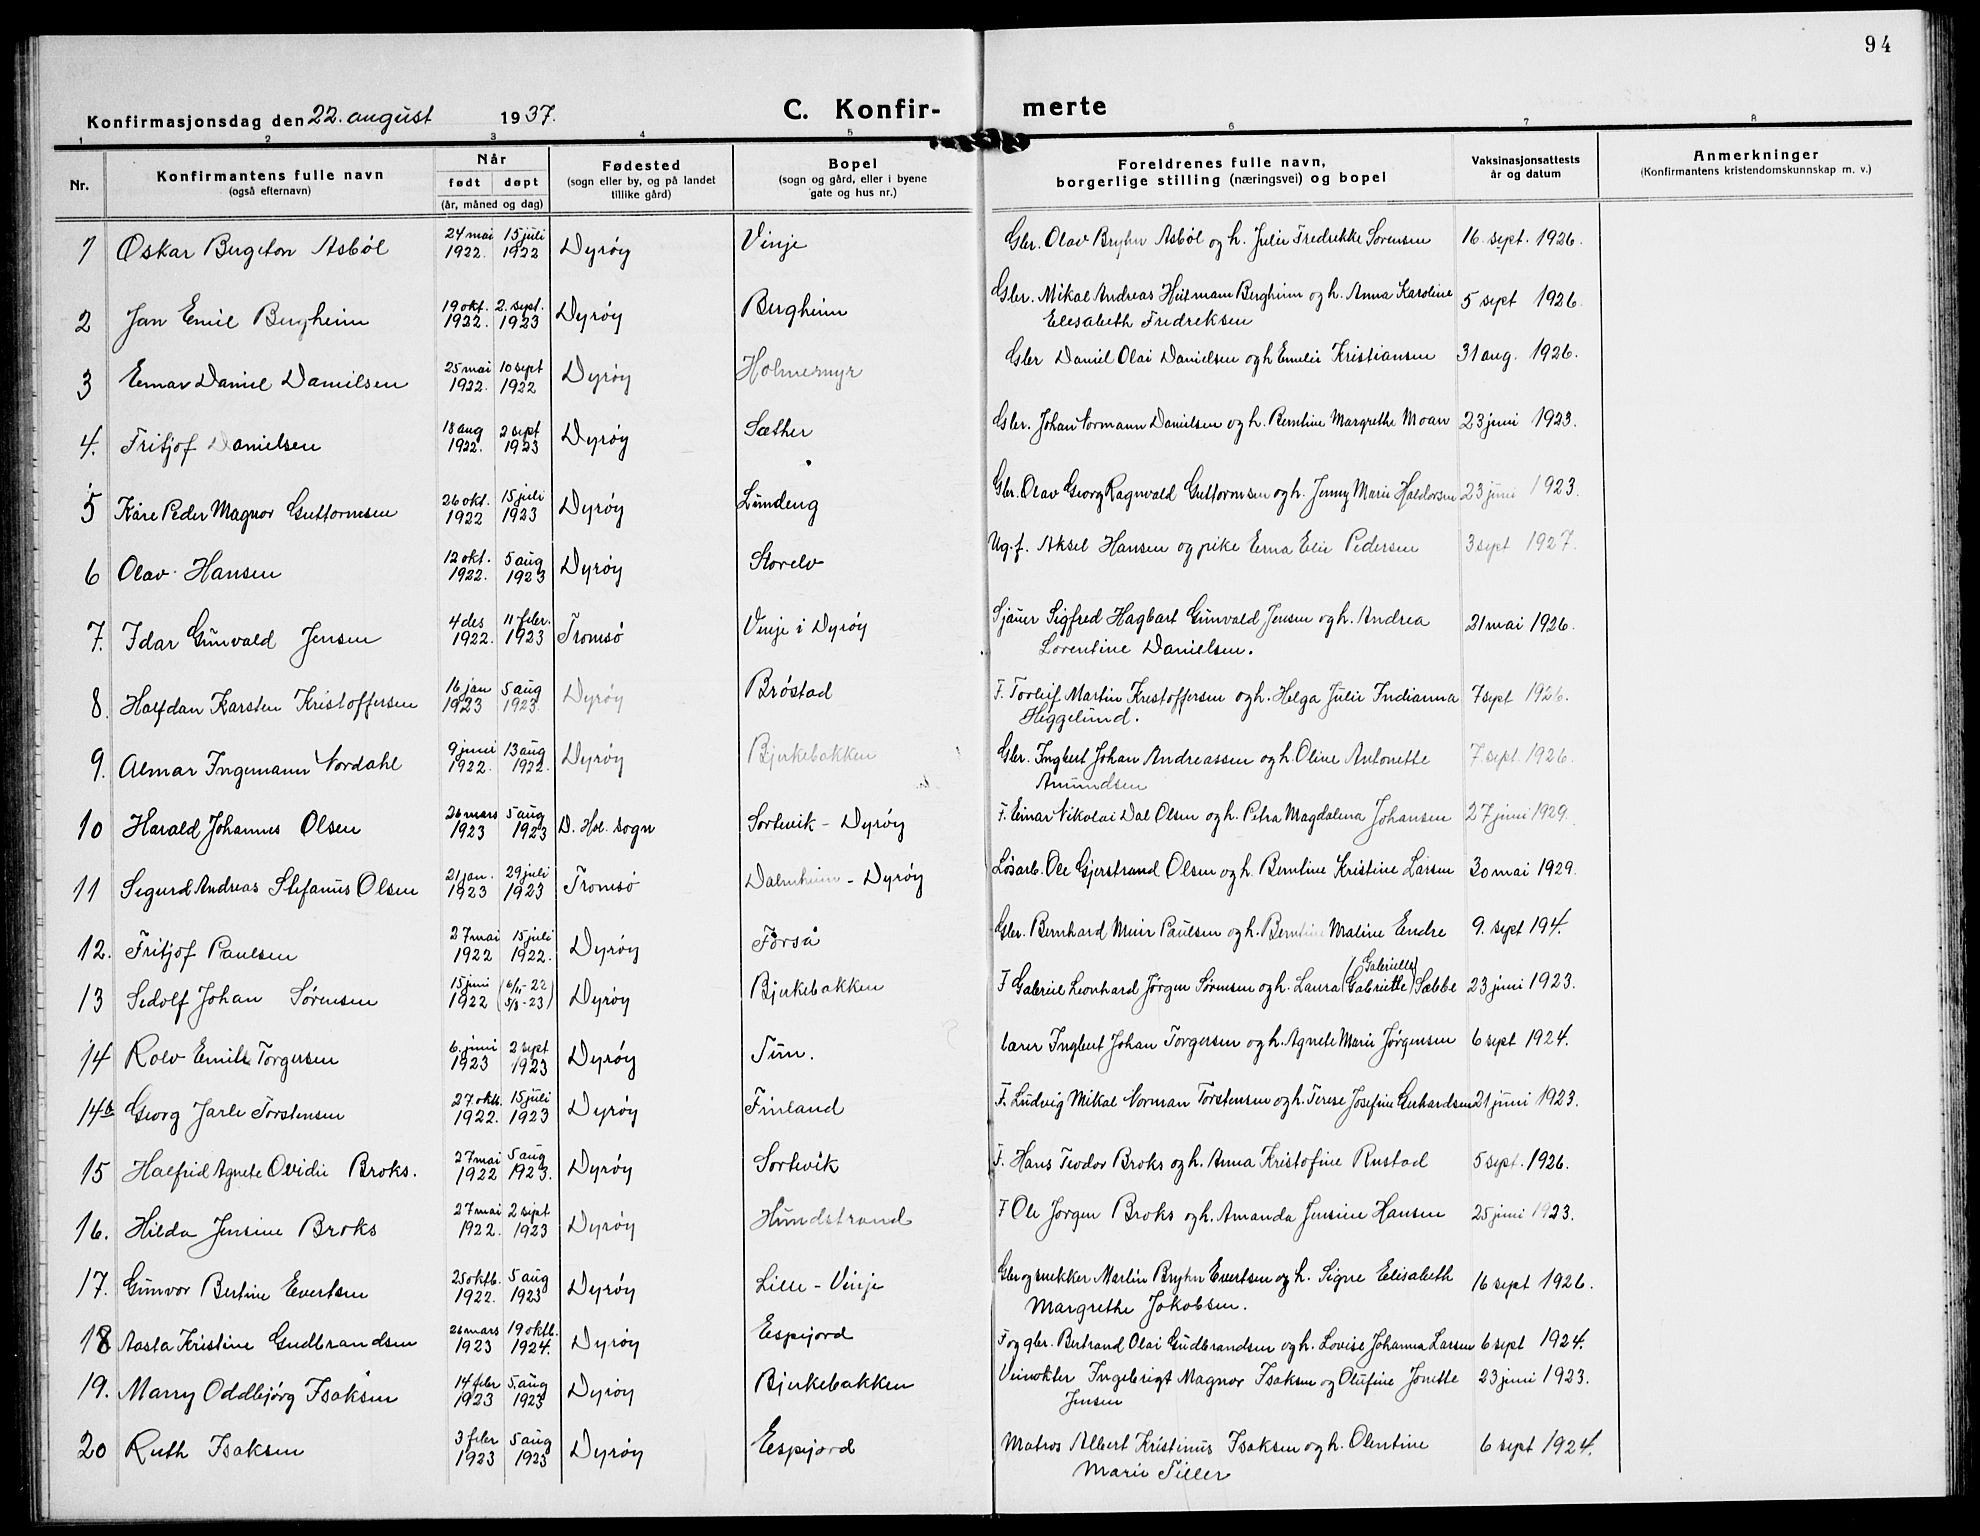 94
Konfirmasjonsdag den 22. august 1937.
C. Konfir- merte
1 2 3 4 5 6 7 8
Nr. Konfirmantens fulle navn (også efternavn) Når født døpt (år, måned og dag) Fødested (sogn eller by, og på landet tillike gård) Bopel (sogn og gård, eller i byene gate og hus nr.) Foreldrenes fulle navn, borgerlige stilling (næringsvei) og bopel Vaksinasjonsattests år og datum Anmerkninger (Konfirmantens kristendomskunnskap m. v.)
1 Oskar Bergeton Asbøl 24 mai 1922. 15 juli 1922 Dyrøy Vinje Gbr. Olav Bryhn Asbøl og h. Julie Fredrikke Sørensen 16. sept. 1926.
2 Jan Emil Bergheim 19 okt. 1922. 2. sept. 1923 Dyrøy Bergheim Gbr. Mikal Andreas Heitmann Bergheim og h. Anna Karoline
Elisabeth Fredriksen 5 sept 1926.
3 Einar Daniel Danielsen 25 mai 1922. 10 sept 1922 Dyrøy Holmemyr Gbr Daniel Olai Danielsen og h Emelie Kristiansen 31 aug. 1926.
4. Fritjof Danielsen 18 aug 1922. 2 sept 1923 Dyrøy Sæther Gbr. Johan Normann Danielsen og h. Berntine Margrethe Moan 23 juni 1923.
5 Kåre Peder Magnor Guttormsen 26 okt. 1922 15 juli 1923 Dyrøy Lundeng Gbr. Olav Georg Ragnvald Guttormsen og h. Jenny Marie Haldorsen 23 juni 1923.
6 Olav Hansen 12 okt. 1922. 5 aug 1923 Dyrøy Storelv Ug. f. Aksel Hansen og pike Erna Elie Pedersen 3 sept 1927.
7. Idar Gunvald Jensen 4 des 1922. 11 febr. 1923 Tromsø Vinje i Dyrøy Sjauer Sigfred Hagbart Gunvald Jensen og h. Andrea
Lorentine Danielsen. 21 mai 1926.
8. Halfdan Karsten Kristoffersen 16 jan 1923 5 aug 1923. Dyrøy Brøstad F. Torleif Martin Kristoffersen og h. Helga Julie Indianna
Heggelund. 7 sept 1926.
9. Almar Ingemann Nordahl 9 juni 1922. 13 aug 1922. Dyrøy Bjerkebakken Gbr. Ingbert Johan Andreassen og h. Oline Antonette
Amundsen 7. sept. 1926.
10 Harald Johannes Olsen 26 mars 1923 5 aug 1923 D. Hol. sogn Sortevik - Dyrøy F. Einar Nikolai Dal Olsen og h. Petra Magdalena Johansen 27 juni 1929.
11 Segurd Andreas Stefanus Olsen 21 jan. 1923 29 juli 1923 Tromsø Dalmheim - Dyrøy Løsarb. Ole Gjerstrand Olsen og h. Berntine Kristine Larsen 30 mai 1929.
12. Fritjof Paulsen 27 mai 1922 15 juli 1922. Dyrøy Forså Gbr. Bernhard Meier Paulsen og h. Berntine Maline Endre 9. sept 194.
13 Sedolf Johan Sørensen 15 juni 1922 (6/11-22 5/8-23) Dyrøy Bjerkebakken F Gabriel Leonhard Jørgen Sørensen og h. Laura (Gabriette) (Gabrielle) Sæbbe 23 juni 1923.
14 Rolv Emil Torgersen 6. juni 1923 2 sept 1923 Dyrøy Tun. lærer Ingbert Johan Torgersen og h. Agnete Marie Jørgensen 6 sept 1924.
14b Georg Jarle Torstensen 27. oktb. 1922. 15 juli 1923 Dyrøy Finland F. Ludvig Mikal Norman Torstensen og h. Terese Josefine Gerhardsen 21 juni 1923.
15 Halfrid Agnete Ovidie Broks. 27 mai 1922 5 aug 1923. Dyrøy Sortevik F. Hans Teodor Broks og h. Anna Kristofine Rustad 5 sept. 1926.
16. Hilda Jensine Broks 27 mai 1922. 2 sept 1923 Dyrøy Hundstrand F Ole Jørgen Broks og h. Amanda Jensine Hansen 25 juni 1923.
17. Gunvor Bertine Evertsen 25 oktb. 1922. 5 aug 1923 Dyrøy Lille - Vinje Gbr og snekker Martin Bryhn Evertsen og h. Signe Elisabeth
Margrethe Jakobsen. 16 sept 1926.
18 Aasta Kristine Gudbrandsen 26 mars 1923 19 oktb. 1924. Dyrøy Espejord F og gbr. Bertrand Olai Gudbrandsen og h. Lovise Johanna Larsen 6 sept 1924.
19. Marry Oddbjørg Isaksen 14 febr 1923 5. aug 1923 Dyrøy Bjerkebakken Veivokter Ingebrigt Magnor Isaksen og Olufine Jonette
Jensen 23 juni 1923.
20 Ruth Isaksen 3 febr 1923 5 aug 1923 Dyrøy Espejord Matros Albert Kristinus Isaksen og h. Olentine
Marie Tiller 6 sept 1924.